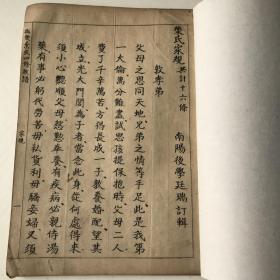 葉氏家規 共計十六條
南陽後學廷瑞訂輯
敦孝弟
父母之恩同天地兄弟之情等手足此是我第
一大倫萬分難盡試思孩提保抱時父母二人
費了千辛萬苦方得長成一子教養婚配望其
成立光大門閭為子者當念此身從何處得來
須小心艷順父母怒懃奉養有疾病必親侍湯
藥有事必躬代勞苦毋私貨利毋聽妾婦又須
家規
一